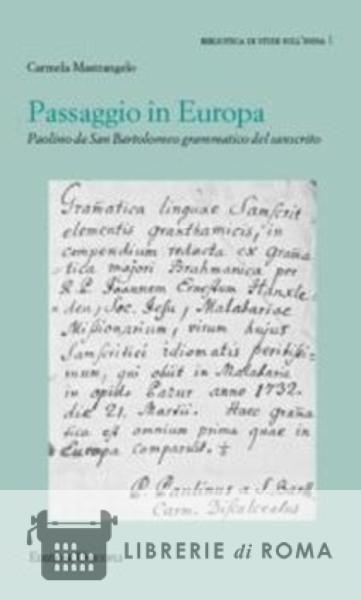 BIBLIOTECA DI STUDI SULL'INDIA 1
Carmela Mastrangelo
Passaggio in Europa
Paolino da San Bartolomeo grammatico del sanscrito
Gram̃atica linguae Samscrit
elementis granthamicis, in
compendium redacta ex Gram̃a
tica majori Brahmanica per
R. P. Joannem Ernestum Hanxle
den, Soc. Jesu, Malabariae
Missionarium, virum hujus
Samscritici idiomatis peritissi-
mum, qui obiit in Malabaria
in opido Pazur anno 1732.
die 21. Martii. Haec gram̃a
tica est omnium prima quae in
Europa comparuit.
P. Paulinus a S. Barth
Carm. Discalceatus
LIBRERIE di ROMA